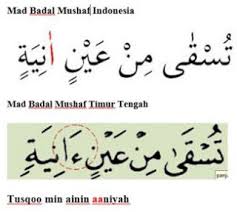 Mad Badal Mushaf Indonesia
تُسْقٰى مِنْ عَيْنٍ اٰنِيَةٍ
Mad Badal Mushaf Timur Tengah
تُسْقَىٰ مِنْ عَيْنٍ ءَانِيَةٍ
Tusqoo min ainin aaniyah